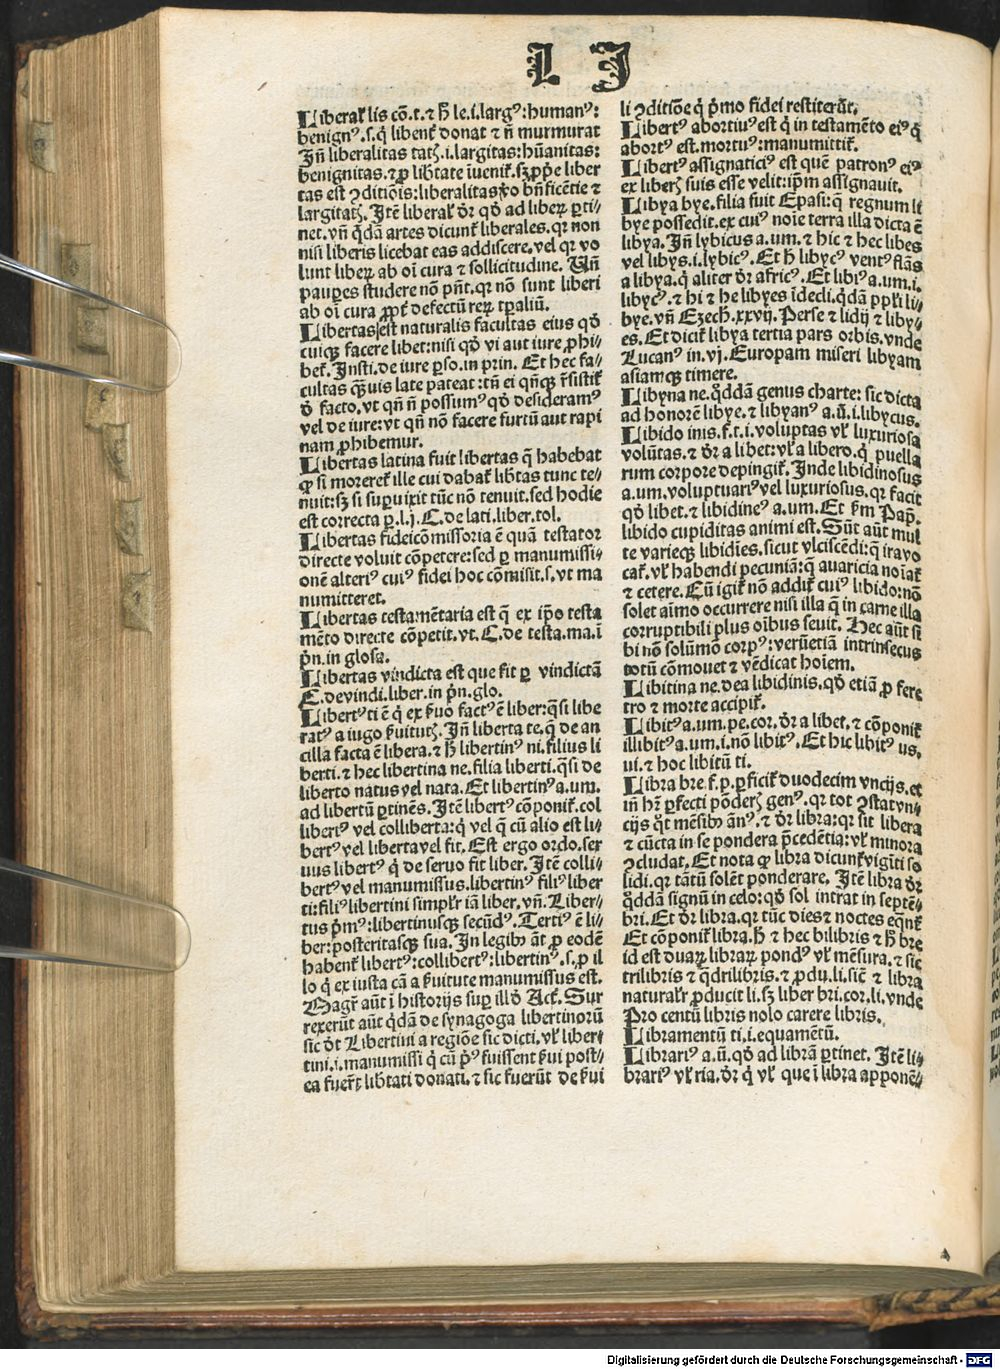 L J
Liberaľ lis cō.t.⁊ h̄ le.i.largꝰ:humanꝰ:
benignꝰ.s.q̇ libent̄ donat ⁊ n̄ murmurat
Jn̄ liberalitas tatꝭ.i.largitas:hūanitas:
benignitas.⁊ ꝓ lib̄tate iuenit̄.sꝫ ꝓp̄e liber
tas est ꝯditiōis:liberalitas ꝟo bn̄ficētie ⁊
largitatꝭ. Jtē liberaľ dr̄ qđ ad liberꝝ ꝑti⸗
net.vn̄ q̄dā artes dicunt̄ liberales.qꝛ non
nisi liberis licebat eas addiscere.vel qꝛ vo
lunt liberꝝ ab oī cura ⁊ sollicitudine. Vn̄
pauꝑes studere nō pn̄t.qꝛ nō sunt liberi
ab oī cura ꝓpt̄ defectū rerꝝ tꝑaliū.
Libertas est naturalis facultas eius qđ
cuiqꝫ facere libet:nisi qđ vi aut iure ꝓhi⸗
bet̄. Jnsti.de iure ꝑso.in prin. Et hec fa⸗
cultas q̄ꝫuis late pateat:tn̄ ei qn̄qꝫ r̄sistit̄
đ facto.vt qn̄ n̄ possumꝰ qđ desideramꝰ
vel de iure:vt qn̄ nō facere furtū aut rapi
nam ꝓhibemur.
Libertas latina fuit libertas q̄ habebat
ꝙ si moreret̄ ille cui dabat̄ lib̄tas tunc te⸗
nuit:sꝫ si suꝑuixit tūc nō tenuit.sed hodie
est correcta ꝑ.l.j.C.de lati.liber.tol.
Libertas fideicōmissoria ē quā testator
directe voluit cōpetere:sed ꝑ manumissi⸗
onē alteriꝰ cuiꝰ fidei hoc cōmisit.s.vt ma
numitteret.
Libertas testamētaria est q̄ ex ip̄o testa
mēto directe cōpetit.vt.C.de testa.ma.ī
p̄n.in glosa.
Libertas vindicta est que fit ꝑ vindictā
C.de vindi.liber.in p̄n.glo.
Libertꝰ ti ē q̇ ex ẜuo factꝰ ē liber:q̄si libe
ratꝰ a iugo ẜuitutꝭ. Jn̄ liberta te.q̄ de an
cilla facta ē libera.⁊ h̄ libertinꝰ ni.filius li
berti.⁊ hec libertina ne.filia liberti.q̄si de
liberto natus vel nata. Et libertinꝰ a.um.
ad libertū ꝑtinēs. Jtē libertꝰ cōponit̄.col
libertꝰ vel colliberta:q̇ vel q̄ cū alio est li⸗
bertꝰ vel liberta vel fit. Est ergo ordo.ser
uus libertꝰ q̇ de seruo fit liber. Jtē colli⸗
bertꝰ vel manumissus.libertinꝰ filiꝰ liber
ti:filiꝰ libertini simplr̄ iā liber.vn̄. Liber⸗
tus p̄mꝰ:libertinusqꝫ secūdꝰ. Tertiꝰ ē li⸗
ber:posteritasqꝫ sua. Jn legibꝰ āt ꝓ eodē
habent̄ libertꝰ:collibertꝰ:libertinꝰ.s.ꝓ il
lo q̇ ex iusta cā a ẜuitute manumissus est.
Magr̄ aūt ī historijs suꝑ illđ Act̄. Sur
rexerūt aūt q̇dā de synagoga libertinorū
sic dr̄t Libertini a regiōe sic dicti.vľ liber⸗
tini.i.manumissi q̇ cū pꝰ fuissent ẜui post⸗
ea fuer̄t lib̄tati donati.⁊ sic fuerūt de ẜui
li ꝯditiōe q̇ p̄mo fidei restiterūt.
Libertꝰ abortiuꝰ est q̇ in testamēto eiꝰ q̇
abortꝰ est.mortuꝰ:manumittit̄.
Libertꝰ assignaticiꝰ est quē patronꝰ eiꝰ
ex liberꝭ suis esse velit:ip̄m assignauit.
Libya bye.filia fuit Epasi:q̄ regnum li
bye possedit.ex cuiꝰ noīe terra illa dicta ē
libya. Jn̄ lybicus a.um.⁊ hic ⁊ hec libes
vel libys.i.lybicꝰ. Et h̄ libycꝰ ventꝰ flās
a libya.q̇ aliter dr̄ africꝰ. Et libiꝰ a.um.i.
libycꝰ.⁊ hi ⁊ he libyes īdecli.q̇dā pp̄li li⸗
bye.vn̄ Ezech̄.xxvij. Perse ⁊ lidij ⁊ liby⸗
es. Et dicit̄ libya tertia pars orbis.vnde
Lucanꝰ in.vj. Europam miseri libyam
asiamqꝫ timere.
Libyna ne.q̊ddā genus charte: sic dicta
ad honorē libye.⁊ libyanꝰ a.ū.i.libycus.
Libido inis.f.t.i.voluptas vľ luxuriosa
volūtas.⁊ dr̄ a libet:vľ a libero.q̄ puella
rum corpore depingit̄. Jnde libidinosus
a.um.voluptuariꝰ vel luxuriosus.qꝛ facit
qđ libet.⁊ libidineꝰ a.um. Et ẜm Pap̄.
libido cupiditas animi est. Sūt aūt mul
te varieqꝫ libidīes.sicut vlciscēdi:q̄ ira vo
cat̄.vľ habendi pecuniā:q̄ auaricia noīat̄
⁊ cetere. Cū igit̄ nō addit̄ cuiꝰ libido:nō
solet aīmo occurrere nisi illa q̄ in carne illa
corruptibili plus oībus seuit. Hec aūt si
bi nō solūmō corpꝰ:verūetiā intrinsecus
totū cōmouet ⁊ vēdicat hoīem.
Libitina ne.dea libidinis.qđ etiā ꝓ fere
tro ⁊ morte accipit̄.
Libitꝰ a.um.pe.cor.dr̄ a libet.⁊ cōponit̄
illibitꝰ a.um.i.nō libitꝰ. Et hic libitꝰ us.
ui.⁊ hoc libitū ti.
Libra bre f.p.ꝑficit̄ duodecim vncijs.et
in̄ hr̄ ꝑfecti pōderꝭ genꝰ.qꝛ tot ꝯstat vn⸗
cijs q̊t mēsibꝰ ānꝰ.⁊ dr̄ libra:qꝛ sit libera
⁊ cūcta in se pondera p̄cedētia:vľ minora
ꝯcludat. Et nota ꝙ libra dicunt̄ vigīti so
lidi.qꝛ tātū solēt ponderare. Jtē libra dr̄
q̊ddā signū in celo:qđ sol intrat in septē⸗
bri. Et dr̄ libra.qꝛ tūc dies ⁊ noctes eq̄nt̄
Et cōponit̄ libra.h̄ ⁊ hec bilibris ⁊ h̄ bre
id est duarꝝ librarꝝ pondꝰ vľ mēsura.⁊ sic
trilibris ⁊ q̄drilibris.⁊ ꝓdu.li.sic̄ ⁊ libra
naturalr̄ ꝓducit li.sꝫ liber bri.cor.li.vnde
Pro centū libris nolo carere libris.
Libramentū ti.i.equamētū.
Librariꝰ a.ū.qđ ad librā ꝑtinet. Jtē li⸗
brariꝰ vľ ria.dr̄ q̇ vľ que ī libra apponē⸗
Digitalisierung gefördert durch die Deutsche Forschungsgemeinschaft - DFG